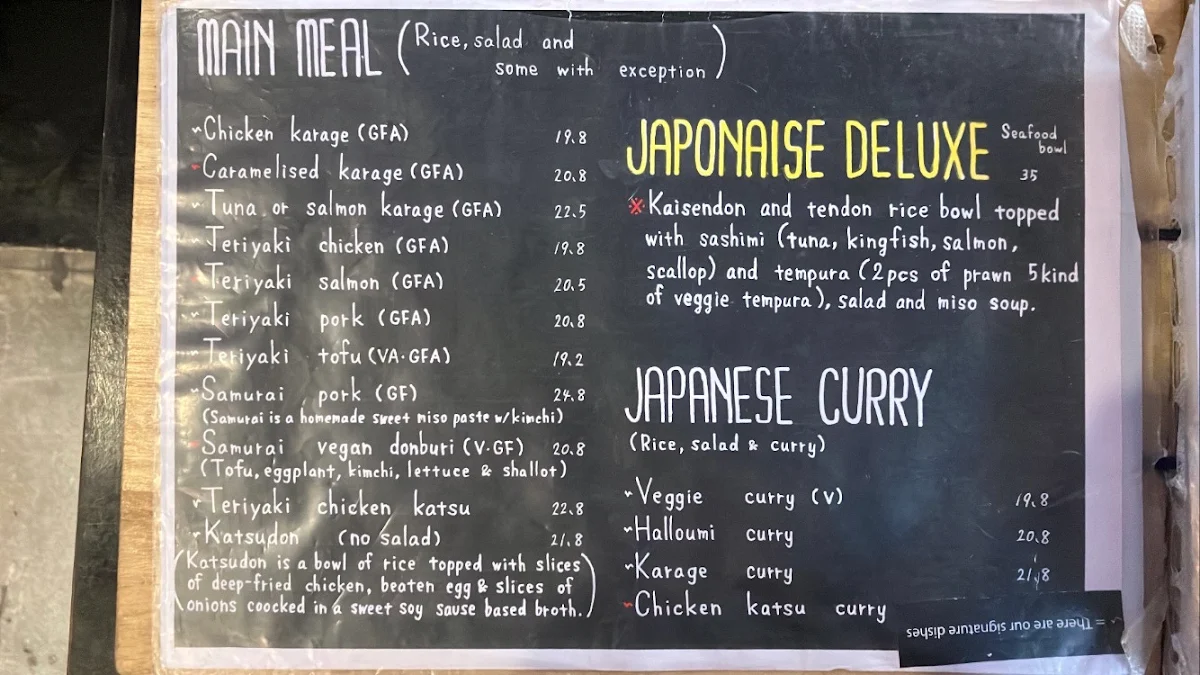 MAIN MEAL (Rice, salad and
some with exception)
~Chicken karage (GFA) 19.8
~Caramelised karage (GFA) 20.8
~Tuna or salmon karage (GFA) 22.5
~Teriyaki chicken (GFA) 19.8
~Teriyaki salmon (GFA) 20.5
~Teriyaki pork (GFA) 20.8
~Teriyaki tofu (VA·GFA) 19.2
~Samurai pork (GF) 24.8
(Samurai is a homemade sweet miso paste w/kimchi)
~Samurai vegan donburi (V·GF) 20.8
(Tofu, eggplant, kimchi, lettuce & shallot)
~Teriyaki chicken katsu 22.8
~Katsudon (no salad) 21.8
(Katsudon is a bowl of rice topped with slices
of deep-fried chicken, beaten egg & slices of
onions coocked in a sweet soy sause based broth.)
JAPONAISE DELUXE Seafood
bowl
35
※Kaisendon and tendon rice bowl topped
with sashimi (tuna, kingfish, salmon,
scallop) and tempura (2pcs of prawn 5kind
of veggie tempura), salad and miso soup.
JAPANESE CURRY
(Rice, salad & curry)
~Veggie curry (V) 19.8
~Halloumi curry 20.8
~Karage curry 21.8
~Chicken katsu curry
~ = There are our signature dishes